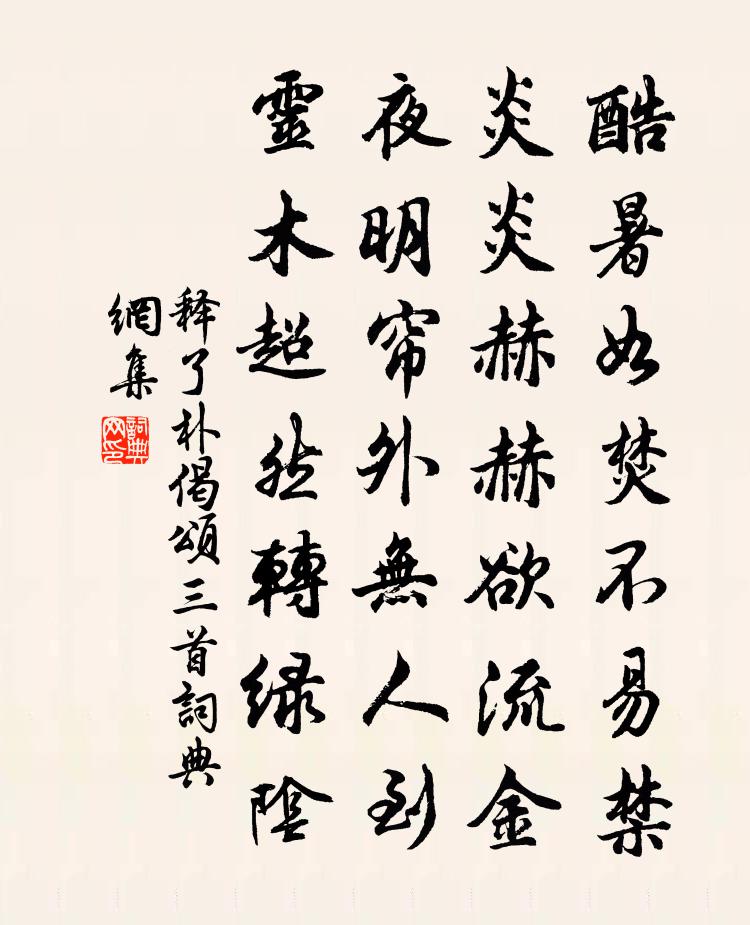 酷暑如焚不易禁
炎炎赫赫欲流金
夜明帘外無人到
靈木超然轉緑陰
释了朴偈頌三首詞典
網集
詞典
网印